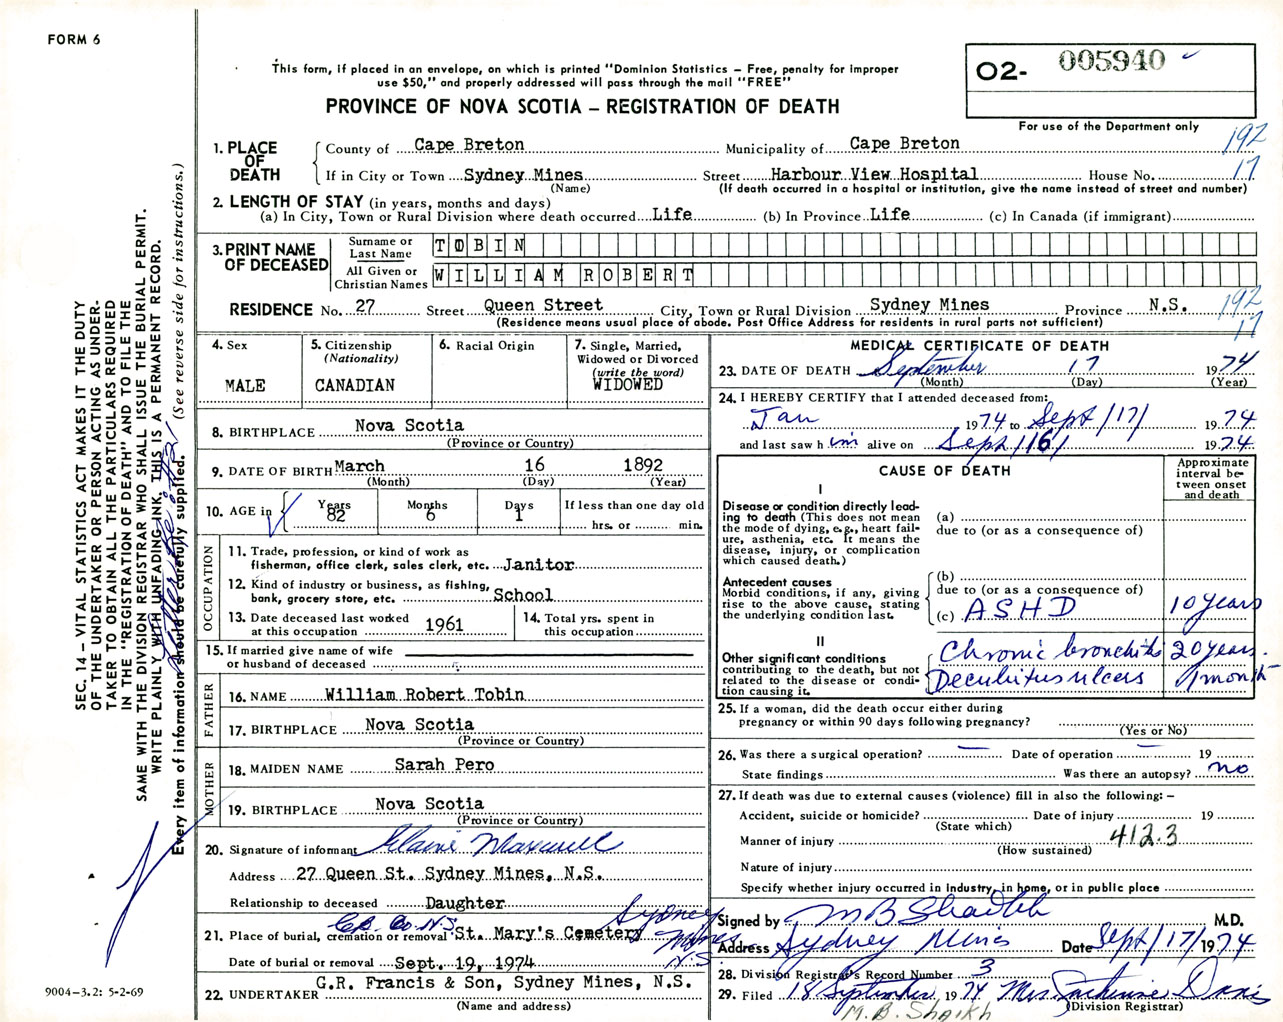 FORM 6
This form, if placed in an envelope, on which is printed "Dominion Statistics – Free, penalty for improper
use $50," and properly addressed will pass through the mail "FREE"
PROVINCE OF NOVA SCOTIA – REGISTRATION OF DEATH
O2- 005940
For use of the Department only
192
17
1. PLACE OF DEATH
County of Cape Breton Municipality of Cape Breton
If in City or Town Sydney Mines Street Harbour View Hospital House No.
(Name) (If death occurred in a hospital or institution, give the name instead of street and number)
2. LENGTH OF STAY (in years, months and days)
(a) In City, Town or Rural Division where death occurred Life (b) In Province Life (c) In Canada (if immigrant)
3. PRINT NAME OF DECEASED
Surname or Last Name TOBIN
All Given or Christian Names WILLIAM ROBERT
RESIDENCE No. 27 Street Queen Street City, Town or Rural Division Sydney Mines Province N.S.
(Residence means usual place of abode. Post Office Address for residents in rural parts not sufficient)
192
17
4. Sex
MALE
5. Citizenship
(Nationality)
CANADIAN
6. Racial Origin
7. Single, Married,
Widowed or Divorced
(write the word)
WIDOWED
8. BIRTHPLACE Nova Scotia
(Province or Country)
9. DATE OF BIRTH March 16 1892
(Month) (Day) (Year)
10. AGE in
Years Months Days If less than one day old
82 6 1 hrs. or min.
OCCUPATION
11. Trade, profession, or kind of work as
fisherman, office clerk, sales clerk, etc. Janitor
12. Kind of industry or business, as fishing,
bank, grocery store, etc. School
13. Date deceased last worked
at this occupation 1961
14. Total yrs. spent in
this occupation
15. If married give name of wife
or husband of deceased
FATHER
16. NAME William Robert Tobin
17. BIRTHPLACE Nova Scotia
(Province or Country)
MOTHER
18. MAIDEN NAME Sarah Pero
19. BIRTHPLACE Nova Scotia
(Province or Country)
20. Signature of informant Elaine Maxwell
Address 27 Queen St. Sydney Mines, N.S.
Relationship to deceased Daughter
C.B. Co. N.S. Sydney
Mines
N.S.
21. Place of burial, cremation or removal St. Mary's Cemetery
Date of burial or removal Sept. 19, 1974
22. UNDERTAKER G.R. Francis & Son, Sydney Mines, N.S.
(Name and address)
MEDICAL CERTIFICATE OF DEATH
23. DATE OF DEATH September 17 1974
(Month) (Day) (Year)
24. I HEREBY CERTIFY that I attended deceased from:
Jan 1974 to Sept/17/ 1974
and last saw him alive on Sept/16/ 1974
CAUSE OF DEATH
Approximate
interval be-
tween onset
and death
I
Disease or condition directly lead-
ing to death (This does not mean
the mode of dying, e.g., heart fail-
ure, asthenia, etc. It means the
disease, injury, or complication
which caused death.)
(a)
due to (or as a consequence of)
Antecedent causes
Morbid conditions, if any, giving
rise to the above cause, stating
the underlying condition last.
(b)
due to (or as a consequence of)
(c) ASHD 10 years
II
Other significant conditions
contributing to the death, but not
related to the disease or condi-
tion causing it.
Chronic bronchitis 20 years.
Decubitus ulcers 1 month
25. If a woman, did the death occur either during
pregnancy or within 90 days following pregnancy?
(Yes or No)
26. Was there a surgical operation? — Date of operation — 19
State findings Was there an autopsy? no
27. If death was due to external causes (violence) fill in also the following: –
Accident, suicide or homicide? Date of injury 19
(State which)
Manner of injury 412.3
(How sustained)
Nature of injury
Specify whether injury occurred in industry, in home, or in public place
Signed by M B Shaikh M.D.
Address Sydney Mines Date Sept/17/1974
28. Division Registrar's Record Number 3
29. Filed 18 September 1974 Mrs. Catherine Davis
(Division Registrar)
M.B. Shaikh
SEC. 14 – VITAL STATISTICS ACT MAKES IT THE DUTY
OF THE UNDERTAKER OR PERSON ACTING AS UNDER-
TAKER TO OBTAIN ALL THE PARTICULARS REQUIRED
IN THE "REGISTRATION OF DEATH" AND TO FILE THE
SAME WITH THE DIVISION REGISTRAR WHO SHALL ISSUE THE BURIAL PERMIT.
WRITE PLAINLY WITH UNFADING INK. THIS IS A PERMANENT RECORD.
Every item of information should be carefully supplied. (See reverse side for instructions.)
9004-3.2: 5-2-69